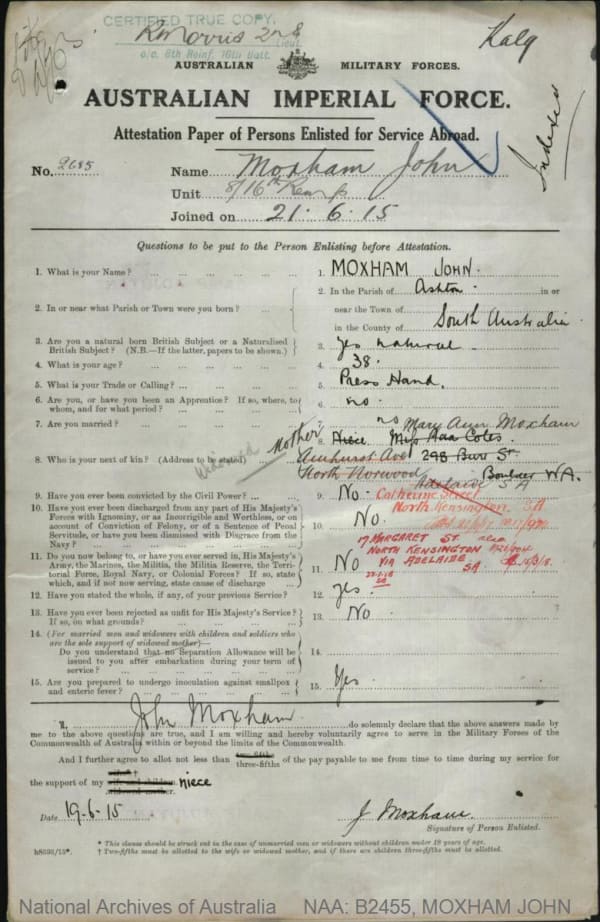 CERTIFIED TRUE COPY.
R Morris 2nd Lieut.
o/c. 8th Reinf. 16th Batt.
Kalg
AUSTRALIAN MILITARY FORCES.
AUSTRALIAN IMPERIAL FORCE.
Attestation Paper of Persons Enlisted for Service Abroad.
Indexed
No. 2685 Name Moxham John
Unit 8/16th Reinfs
Joined on 21. 6. 15
Questions to be put to the Person Enlisting before Attestation.
1. What is your Name? 1. MOXHAM JOHN.
2. In or near what Parish or Town were you born? 2. In the Parish of Ashton in or
near the Town of
in the County of South Australia
3. Are you a natural born British Subject or a Naturalised
British Subject? (N.B.—If the latter, papers to be shown.) 3. Yes natural
4. What is your age? 4. 38.
5. What is your Trade or Calling? 5. Press Hand.
6. Are you, or have you been an Apprentice? If so, where, to
whom, and for what period? 6. no.
7. Are you married? 7. no
8. Who is your next of kin? (Address to be stated) widowed mother 8. Niece Miss Ada Coles. Mary Ann Moxham
Amhurst Ave 298 Burt St.
North Norwood Boulder WA.
Adelaide SA
9. Have you ever been convicted by the Civil Power? 9. No.
Catherine Street
North Kensington. SA
10. Have you ever been discharged from any part of His Majesty's
Forces with Ignominy, or as Incorrigible and Worthless, or on
account of Conviction of Felony, or of a Sentence of Penal
Servitude, or have you been Dismissed with Disgrace from the
Navy? 10. No.
17 MARGARET ST.
NORTH KENSINGTON
VIA ADELAIDE
SA
11. Do you now belong to, or have you ever served in, His Majesty's
Army, the Marines, the Militia, the Militia Reserve, the Terri-
torial Force, Royal Navy, or Colonial Forces? If so, state
which, and if not now serving, state cause of discharge 11. No
12. Have you stated the whole, if any, of your previous Service? 12. yes.
13. Have you ever been rejected as unfit for His Majesty's Service?
If so, on what grounds? 13. No
14. (For married men and widowers with children and soldiers who
are the sole support of widowed mother)—
Do you understand that no Separation Allowance will be
issued to you after embarkation during your term of
service? 14.
15. Are you prepared to undergo inoculation against smallpox
and enteric fever? 15. Yes
I, John Moxham do solemnly declare that the above answers made by
me to the above questions are true, and I am willing and hereby voluntarily agree to serve in the Military Forces of the
Commonwealth of Australia within or beyond the limits of the Commonwealth.
And I further agree to allot not less than two-fifths three-fifths of the pay payable to me from time to time during my service for
the support of my wife and children niece
widowed mother.
Date 19-6-15 J. Moxham
Signature of Person Enlisted.
* This clause should be struck out in the case of unmarried men or widowers without children under 18 years of age.
† Two-fifths must be allotted to the wife or widowed mother, and if there are children three-fifths must be allotted.
National Archives of Australia NAA: B2455, MOXHAM JOHN